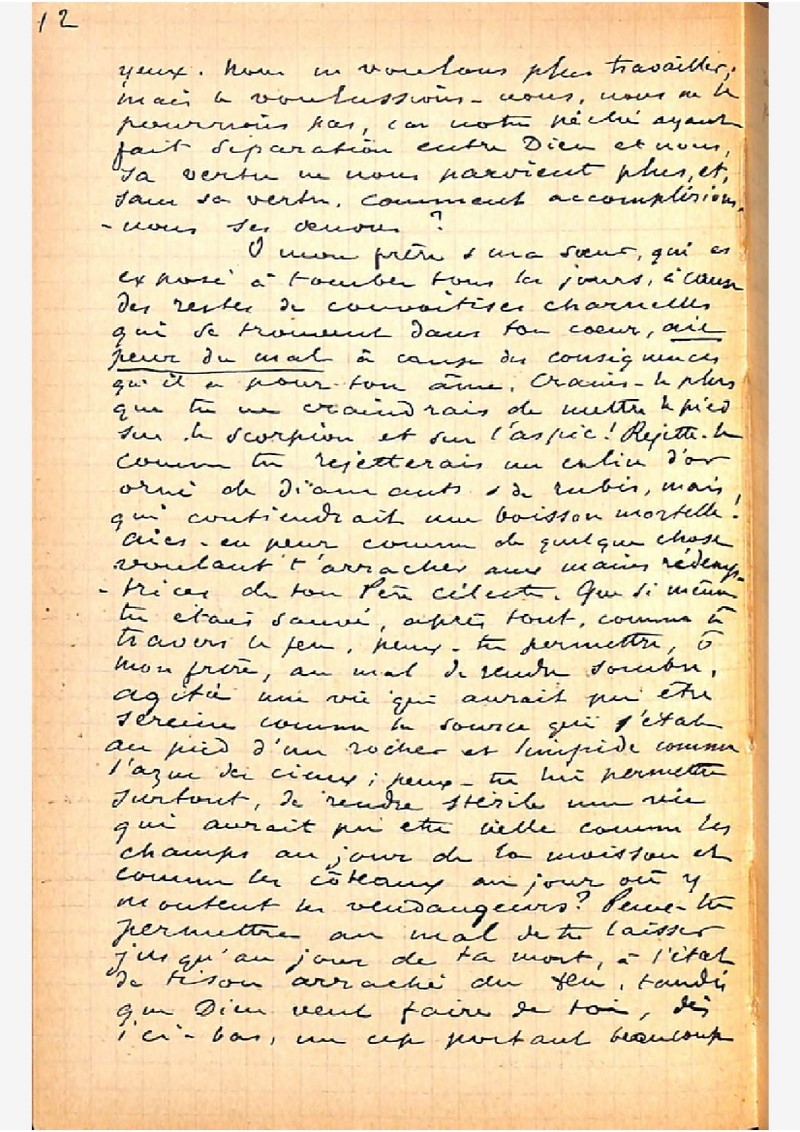 12
yeux. Nous ne voulons plus travailler;
mais le voulussions-nous, nous ne le
pourrions pas, car notre péché ayant
fait séparation entre Dieu et nous,
sa vertu ne nous parvient plus, et,
sans sa vertu, comment accomplirions-
-nous ses œuvres ?
O mon frère & ma sœur, qui es
exposé à tomber tous les jours, à cause
des restes de convoitises charnelles
qui se trouvent dans ton coeur, aie
peur du mal à cause des conséquences
qu'il a pour ton âme. Crains-le plus
que tu ne craindrais de mettre le pied
sur le scorpion et sur l'aspic! Rejette-le
comme tu rejetterais un calice d'or
orné de diamants & de rubis, mais,
qui contiendrait une boisson mortelle!
Aies-en peur comme de quelque chose
voulant t'arracher aux mains rédemp-
-trices de ton Père céleste. Que si même
tu étais sauvé, après tout, comme à
travers le feu, peux-tu permettre, ô
mon frère, au mal de rendre sombre,
agitée une vie qui aurait pu être
sereine comme la source qui s'étale
au pied d'un rocher et limpide comme
l'azur des cieux; peux-tu lui permettre
surtout, de rendre stérile une vie
qui aurait pu être belle comme les
champs au jour de la moisson et
comme les côteaux au jour où y
montent les vendangeurs? Peux-tu
permettre au mal de te laisser
jusqu'au jour de ta mort, à l'état
de tison arraché du feu, tandis
que Dieu veut faire de toi, dès
ici-bas, un cep portant beaucoup